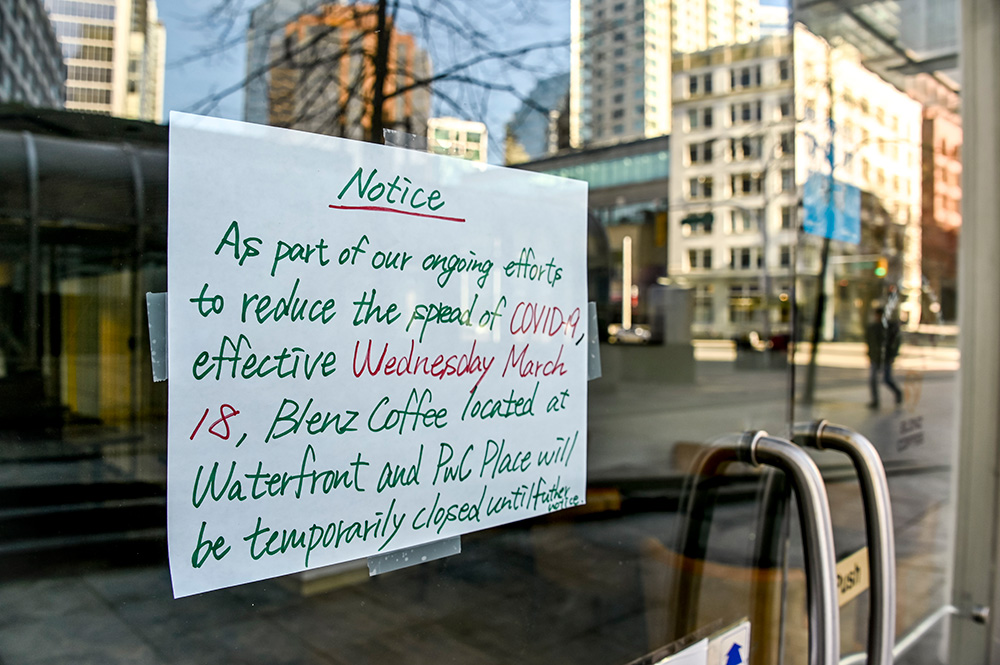 Notice
As part of our ongoing efforts
to reduce the spread of COVID-19,
effective Wednesday March
18, Blenz Coffee located at
Waterfront and PwC Place will
be temporarily closed until futher
notice.
Push
BLENZ
COFFEE